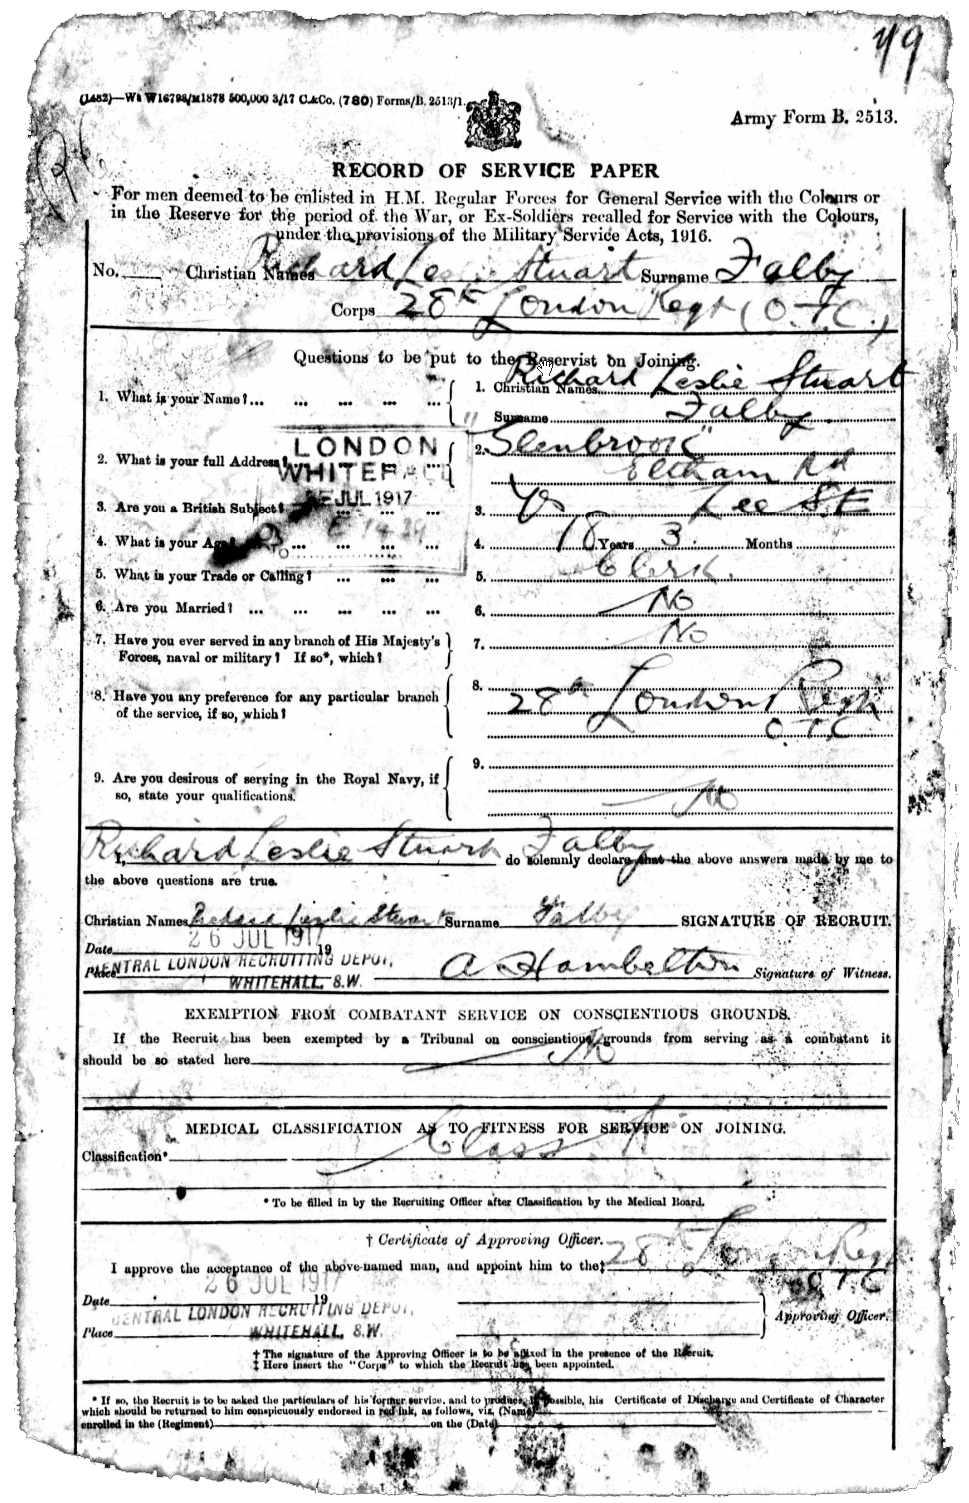 119
(1452)—Wt W16798/M1878 500,000 3/17 C.&Co. (780) Forms/B. 2513/1.
Army Form B. 2513.
RECORD OF SERVICE PAPER
For men deemed to be enlisted in H.M. Regular Forces for General Service with the Colours or
in the Reserve for the period of the War, or Ex-Soldiers recalled for Service with the Colours,
under the provisions of the Military Service Acts, 1916.
No. Christian Names Richard Leslie Stuart Surname Falby
Corps 28th London Regt (O.T.C.)
Questions to be put to the Reservist on Joining.
1. What is your Name?... ... ... ... ... 1. Christian Names Richard Leslie Stuart
Surname Falby
2. What is your full Address? ... 2. "Glenbrook"
Eltham Rd
Lee S.E
LONDON
WHITEHALL
JUL 1917
3. Are you a British Subject? ... ... ... 3. Yes
4. What is your Age? ... ... ... ... 4. 18 Years 3 Months
5. What is your Trade or Calling? ... ... ... 5. Clerk.
6. Are you Married? ... ... ... ... ... 6. No
7. Have you ever served in any branch of His Majesty's
Forces, naval or military? If so*, which? 7. No
8. Have you any preference for any particular branch
of the service, if so, which? 8. 28th London Regt
O.T.C.
9. Are you desirous of serving in the Royal Navy, if
so, state your qualifications. 9. No
I, Richard Leslie Stuart Falby do solemnly declare that the above answers made by me to
the above questions are true.
Christian Names Richard Leslie Stuart Surname Falby SIGNATURE OF RECRUIT.
Date 26 JUL 1917 19
Place CENTRAL LONDON RECRUITING DEPOT,
WHITEHALL, S.W. A Hambelton Signature of Witness.
EXEMPTION FROM COMBATANT SERVICE ON CONSCIENTIOUS GROUNDS.
If the Recruit has been exempted by a Tribunal on conscientious grounds from serving as a combatant it
should be so stated here No
MEDICAL CLASSIFICATION AS TO FITNESS FOR SERVICE ON JOINING.
Classification* Class A
* To be filled in by the Recruiting Officer after Classification by the Medical Board.
† Certificate of Approving Officer.
I approve the acceptance of the above-named man, and appoint him to the‡ 28th London Regt
O T C
Date 26 JUL 1917 19
Place CENTRAL LONDON RECRUITING DEPOT,
WHITEHALL, S.W.
Approving Officer.
† The signature of the Approving Officer is to be affixed in the presence of the Recruit.
‡ Here insert the "Corps" to which the Recruit has been appointed.
* If so, the Recruit is to be asked the particulars of his former service, and to produce, if possible, his Certificate of Discharge and Certificate of Character
which should be returned to him conspicuously endorsed in red ink, as follows, viz. (Name)
enrolled in the (Regiment) on the (Date)